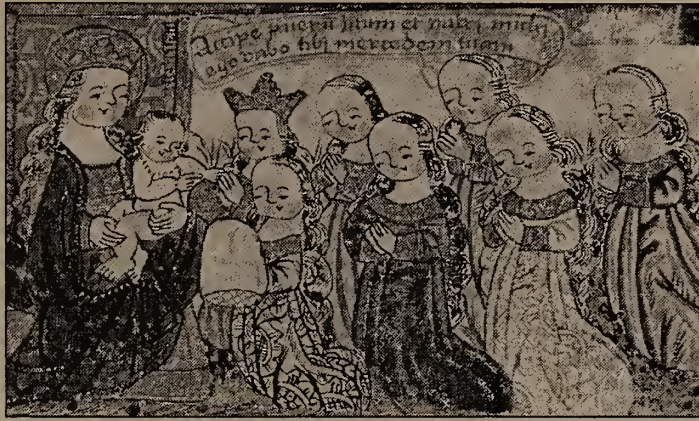 Accipe puerū istum et nutri michi
ego dabo tibi mercedem tuam